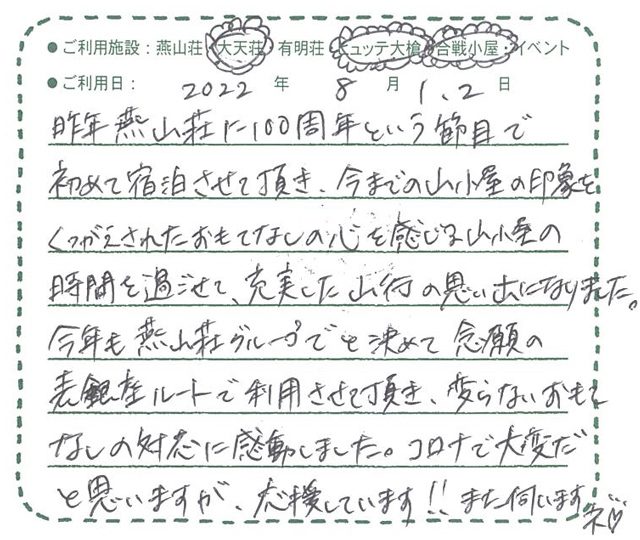 ●ご利用施設：燕山荘・大天荘・有明荘・ヒュッテ大槍・合戦小屋・イベント
●ご利用日： 2022 年 8 月 1、2 日
昨年燕山荘に100周年という節目で
初めて宿泊させて頂き、今までの山小屋の印象を
くつがえされたおもてなしの心を感じる山小屋の
時間を過ごせて、充実した山行の思い出になりました。
今年も燕山荘グループでと決めて念願の
表銀座ルートで利用させて頂き、変らないおもて
なしの対応に感動しました。コロナで大変だ
と思いますが、応援しています!!また伺います
ネ♡